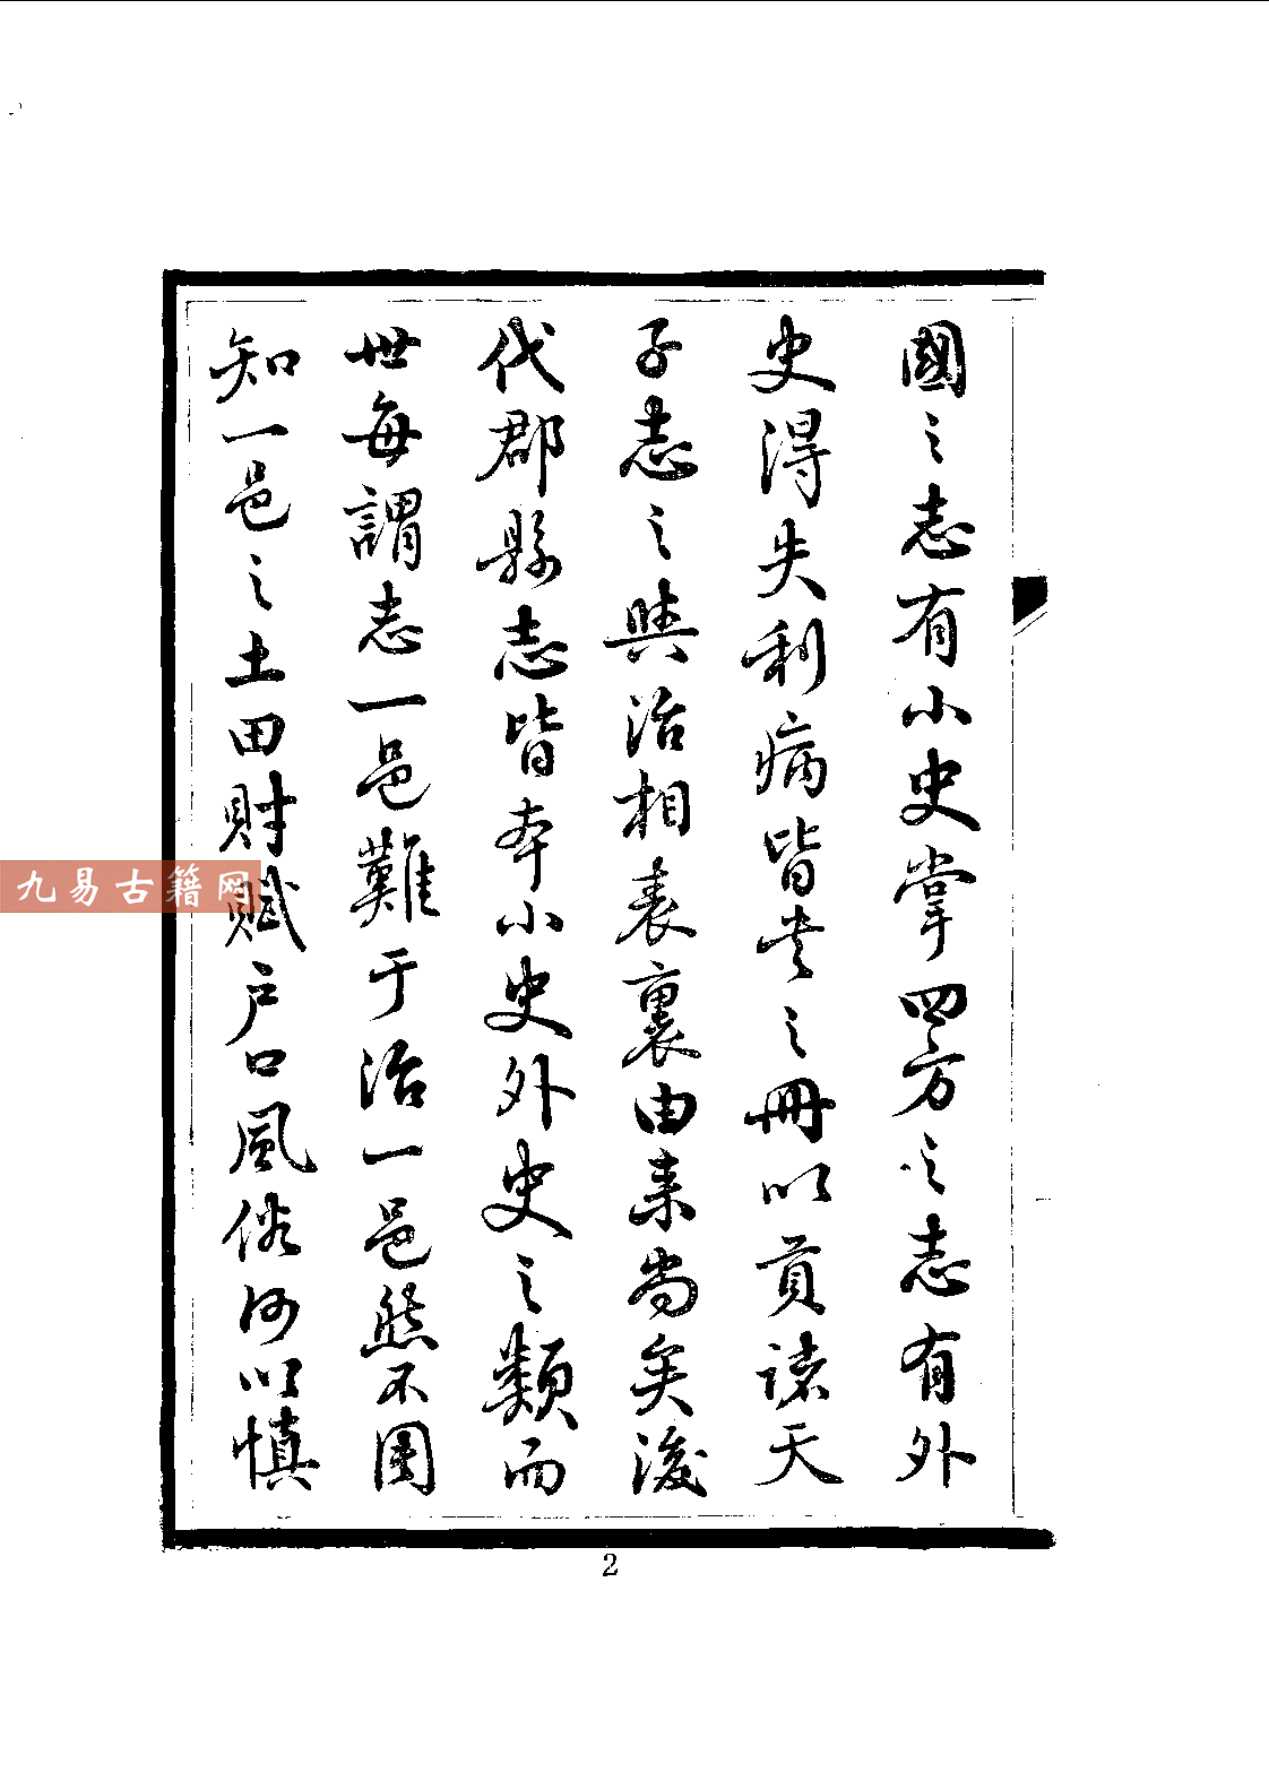 國之志有小史掌四方之志有外
史得失利病皆書之冊以貢諸天
子志之與治相表裏由来尚矣後
代郡縣志皆本小史外史之類而
世每謂志一邑難于治一邑然不圖
知一邑之土田財賦戶口風俗何以慎
九易古籍网
2